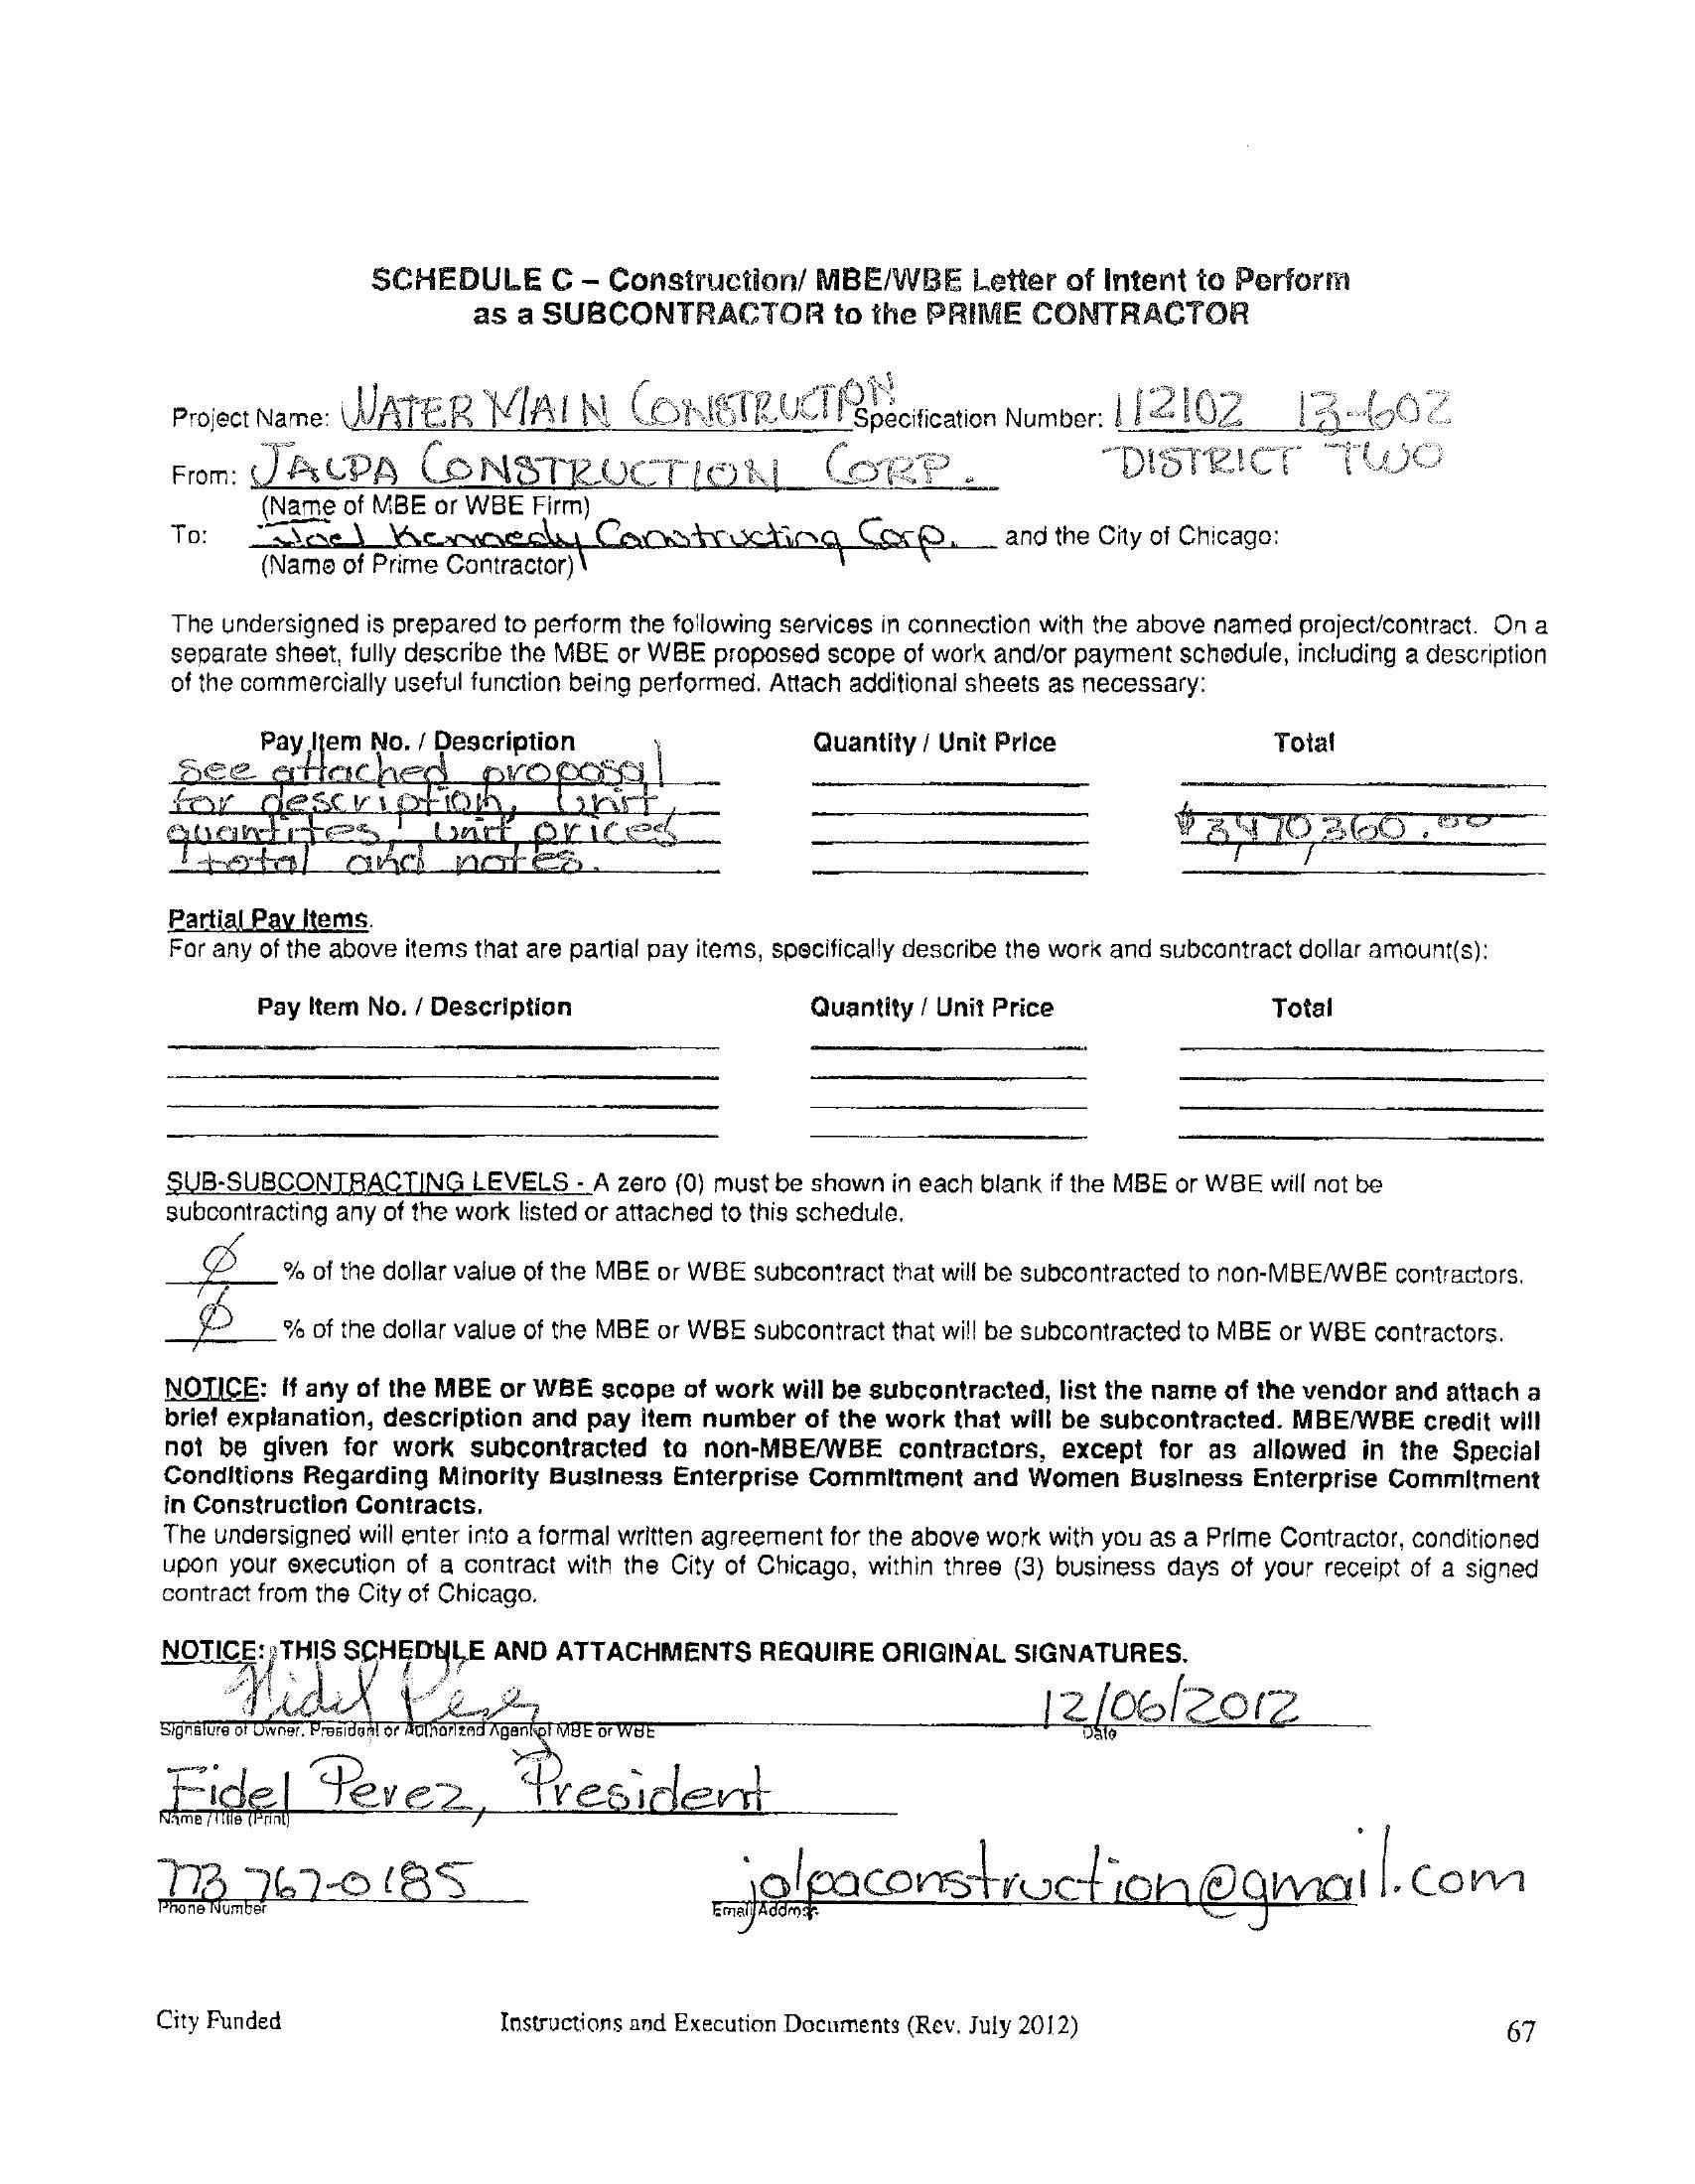 SCHEDULE C – Construction/ MBE/WBE Letter of Intent to Perform
as a SUBCONTRACTOR to the PRIME CONTRACTOR
Project Name: WATER MAIN CONSTRUCTION Specification Number: 112102 13-602
From: JALPA CONSTRUCTION CORP. DISTRICT TWO
(Name of MBE or WBE Firm)
To: Joel Kennedy Constructing Corp. and the City of Chicago:
(Name of Prime Contractor)
The undersigned is prepared to perform the following services in connection with the above named project/contract. On a
separate sheet, fully describe the MBE or WBE proposed scope of work and/or payment schedule, including a description
of the commercially useful function being performed. Attach additional sheets as necessary:
Pay Item No. / Description Quantity / Unit Price Total
See attached proposal
for description, unit,
quantites, unit prices $3,470,360.00
total and notes.
Partial Pay Items.
For any of the above items that are partial pay items, specifically describe the work and subcontract dollar amount(s):
Pay Item No. / Description Quantity / Unit Price Total
SUB-SUBCONTRACTING LEVELS - A zero (0) must be shown in each blank if the MBE or WBE will not be
subcontracting any of the work listed or attached to this schedule.
0 % of the dollar value of the MBE or WBE subcontract that will be subcontracted to non-MBE/WBE contractors.
0 % of the dollar value of the MBE or WBE subcontract that will be subcontracted to MBE or WBE contractors.
NOTICE: If any of the MBE or WBE scope of work will be subcontracted, list the name of the vendor and attach a
brief explanation, description and pay item number of the work that will be subcontracted. MBE/WBE credit will
not be given for work subcontracted to non-MBE/WBE contractors, except for as allowed in the Special
Conditions Regarding Minority Business Enterprise Commitment and Women Business Enterprise Commitment
in Construction Contracts.
The undersigned will enter into a formal written agreement for the above work with you as a Prime Contractor, conditioned
upon your execution of a contract with the City of Chicago, within three (3) business days of your receipt of a signed
contract from the City of Chicago.
NOTICE: THIS SCHEDULE AND ATTACHMENTS REQUIRE ORIGINAL SIGNATURES.
Fidel Perez 12/06/2012
Signature of Owner, President or Authorized Agent of MBE or WBE Date
Fidel Perez, President
Name / Title (Print)
773 767-0185 jalpaconstruction@gmail.com
Phone Number Email Address
City Funded Instructions and Execution Documents (Rev. July 2012) 67